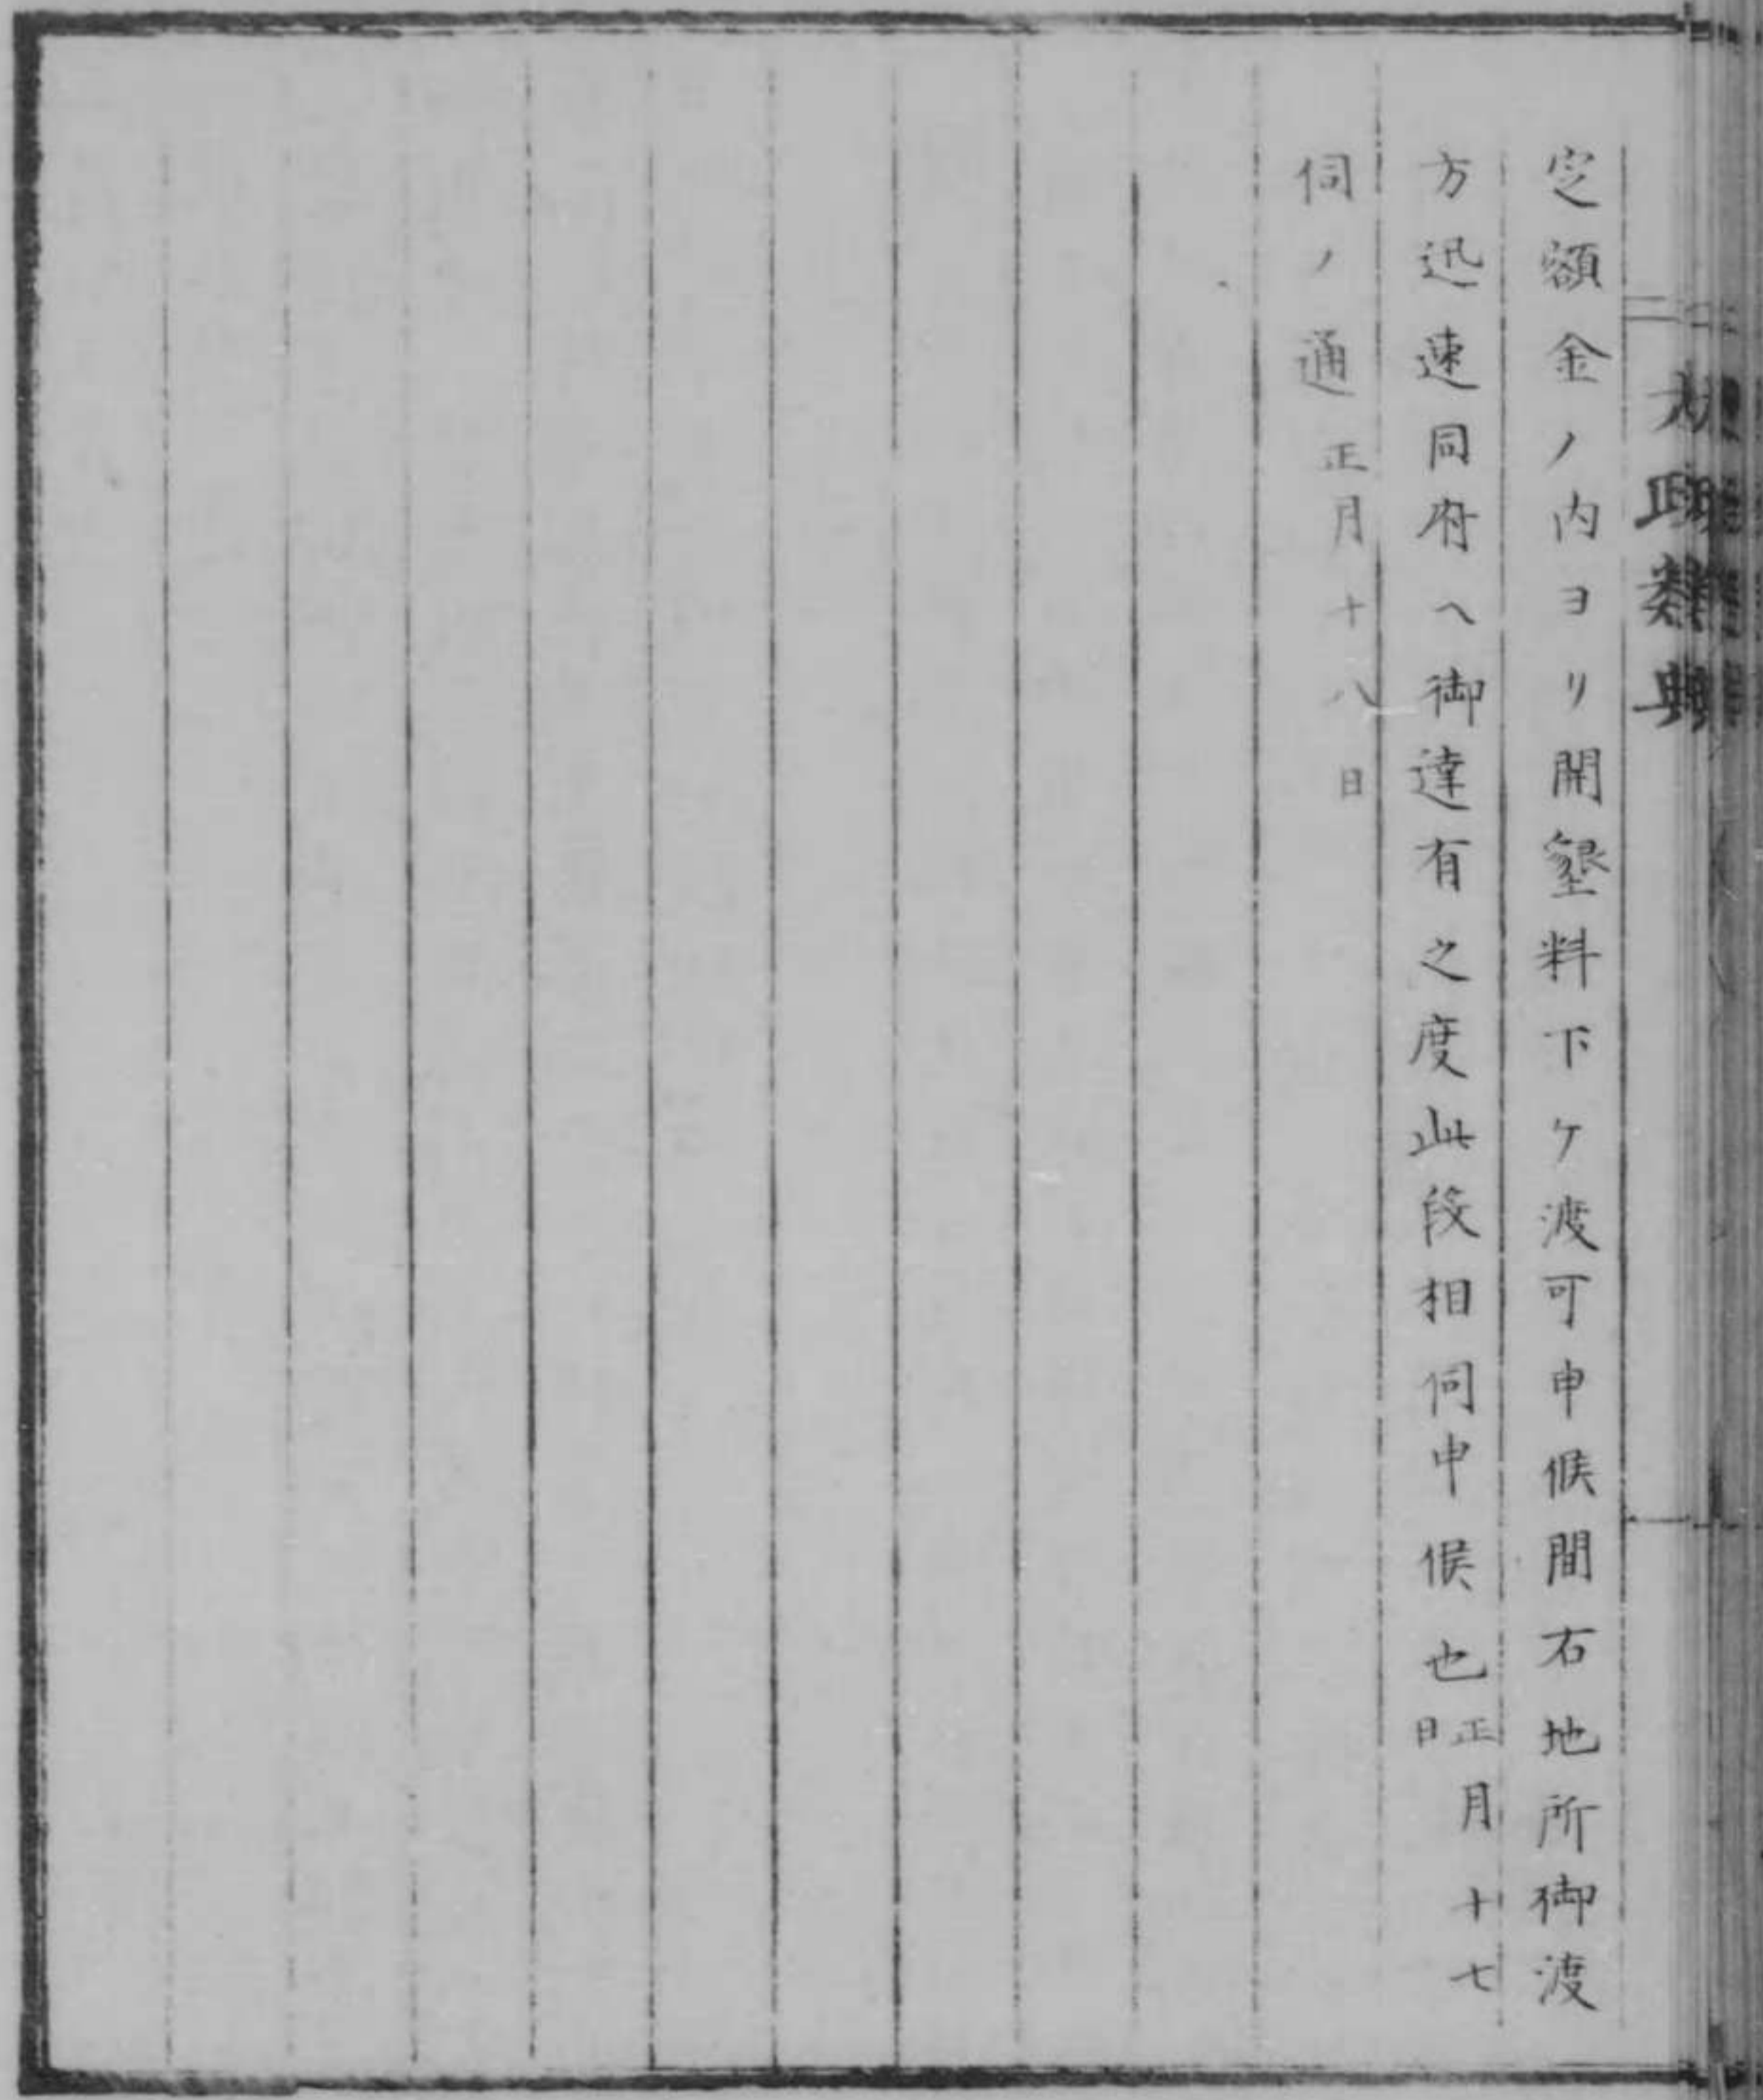 太政類典
定額金ノ内ヨリ開墾料下ケ渡可申候間右地所御渡
方迅速同府ヘ御達有之度此段相伺申候也正月十七日
伺ノ通正月十八日